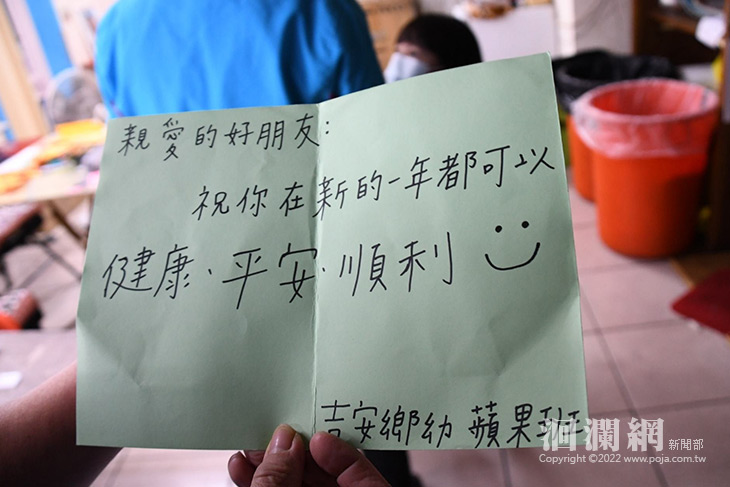 親愛的好朋友:
祝你在新的一年都可以
健康、平安、順利
吉安鄉幼 蘋果班
洄瀾網 新聞部
Copyright ©2022 www.poja.com.tw